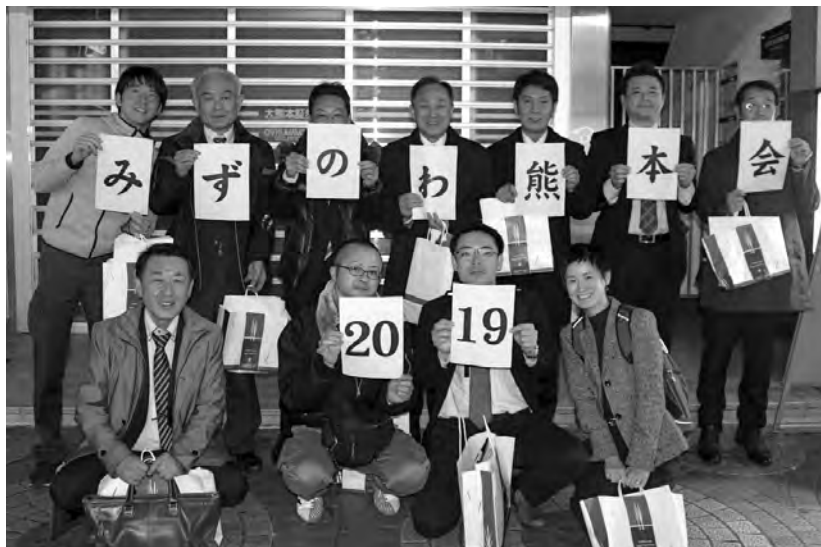 みずのわ熊本会
2019